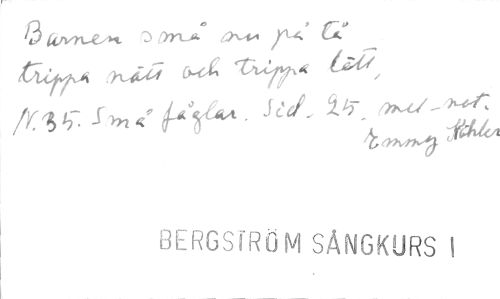 Barnen små nu på tå
trippa nätt och trippa lätt,
N. 35. Små fåglar. Sid. 25. mel-not.
Emmy Köhler
BERGSTRÖM SÅNGKURS I